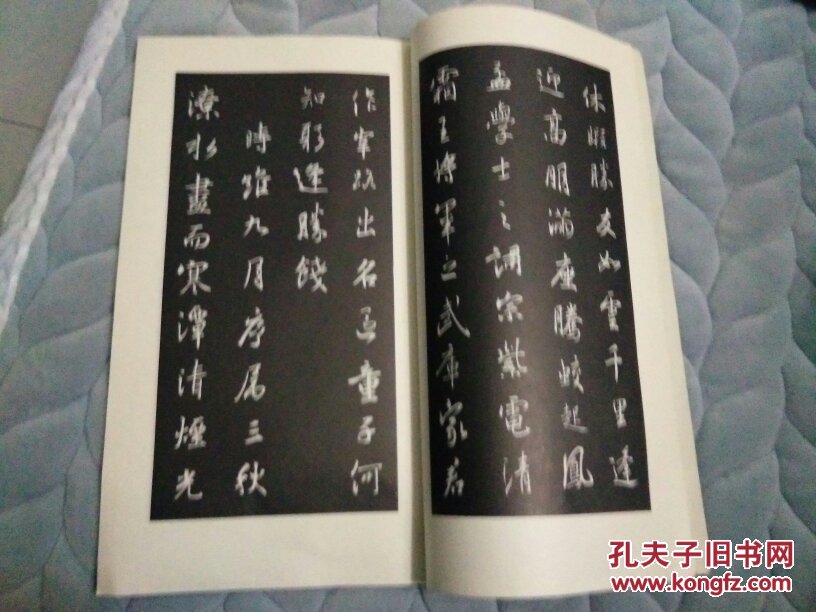 休暇勝友如雲千里逢
迎高朋滿座騰蛟起鳳
孟學士之詞宗紫電清
霜王將軍之武庫家君
作宰路出名區童子何
知躬逢勝餞
時維九月序属三秋
潦水盡而寒潭清煙光
孔夫子旧书网
www.kongfz.com